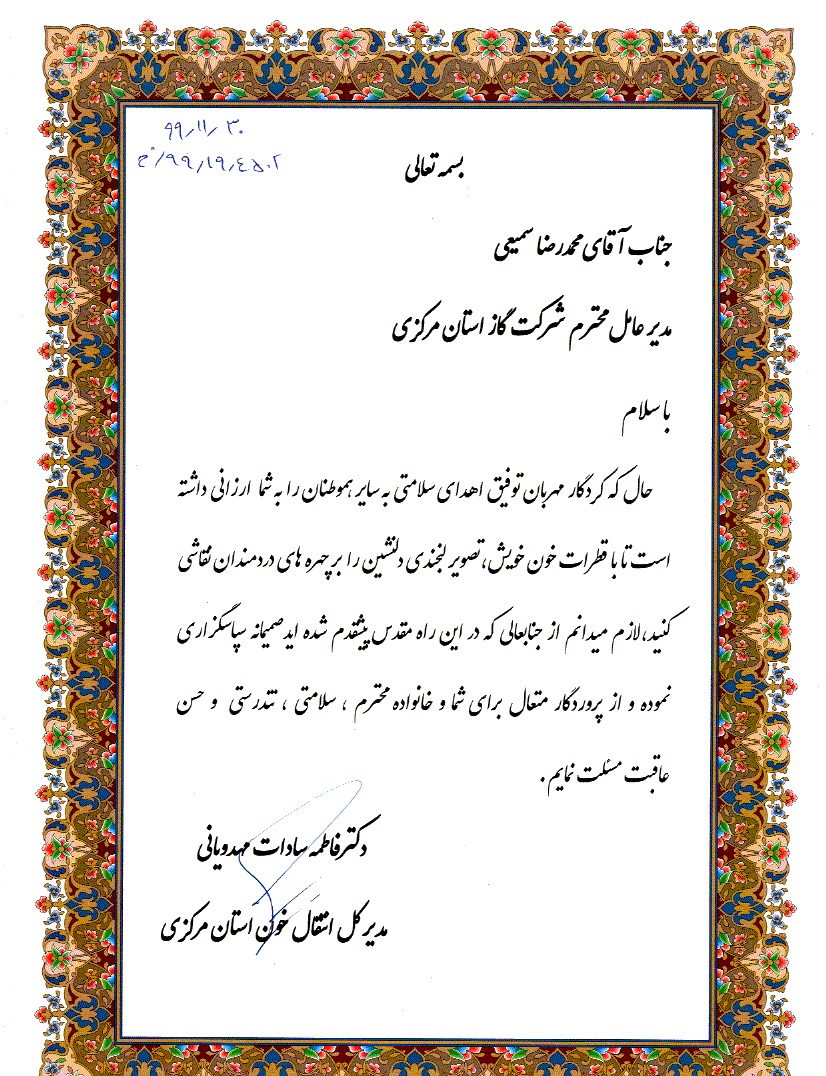 ۹۹٫۱۱٫۳۰
۹۹٫۱۹٫٤۵۰۲
بسمه تعالی
جناب آقای محمدرضا سمیعی
مدیر عامل محترم شرکت گاز استان مرکزی
با سلام
حال که کردگار مهربان توفیق اهدای سلامتی به سایر هموطنان را به شما ارزانی داشته
است تا با قطرات خون خویش، تصویر لبخندی دلنشین را بر چهره های دردمندان نقاشی
کنید، لازم میدانم از جنابعالی که در این راه مقدس پیشقدم شده اید صمیمانه سپاسگزاری
نموده و از پروردگار متعال برای شما و خانواده محترم ، سلامتی ، تندرستی و حسن
عاقبت مسئلت نمایم .
دکتر فاطمه سادات مهدویانی
مدیر کل انتقال خون استان مرکزی